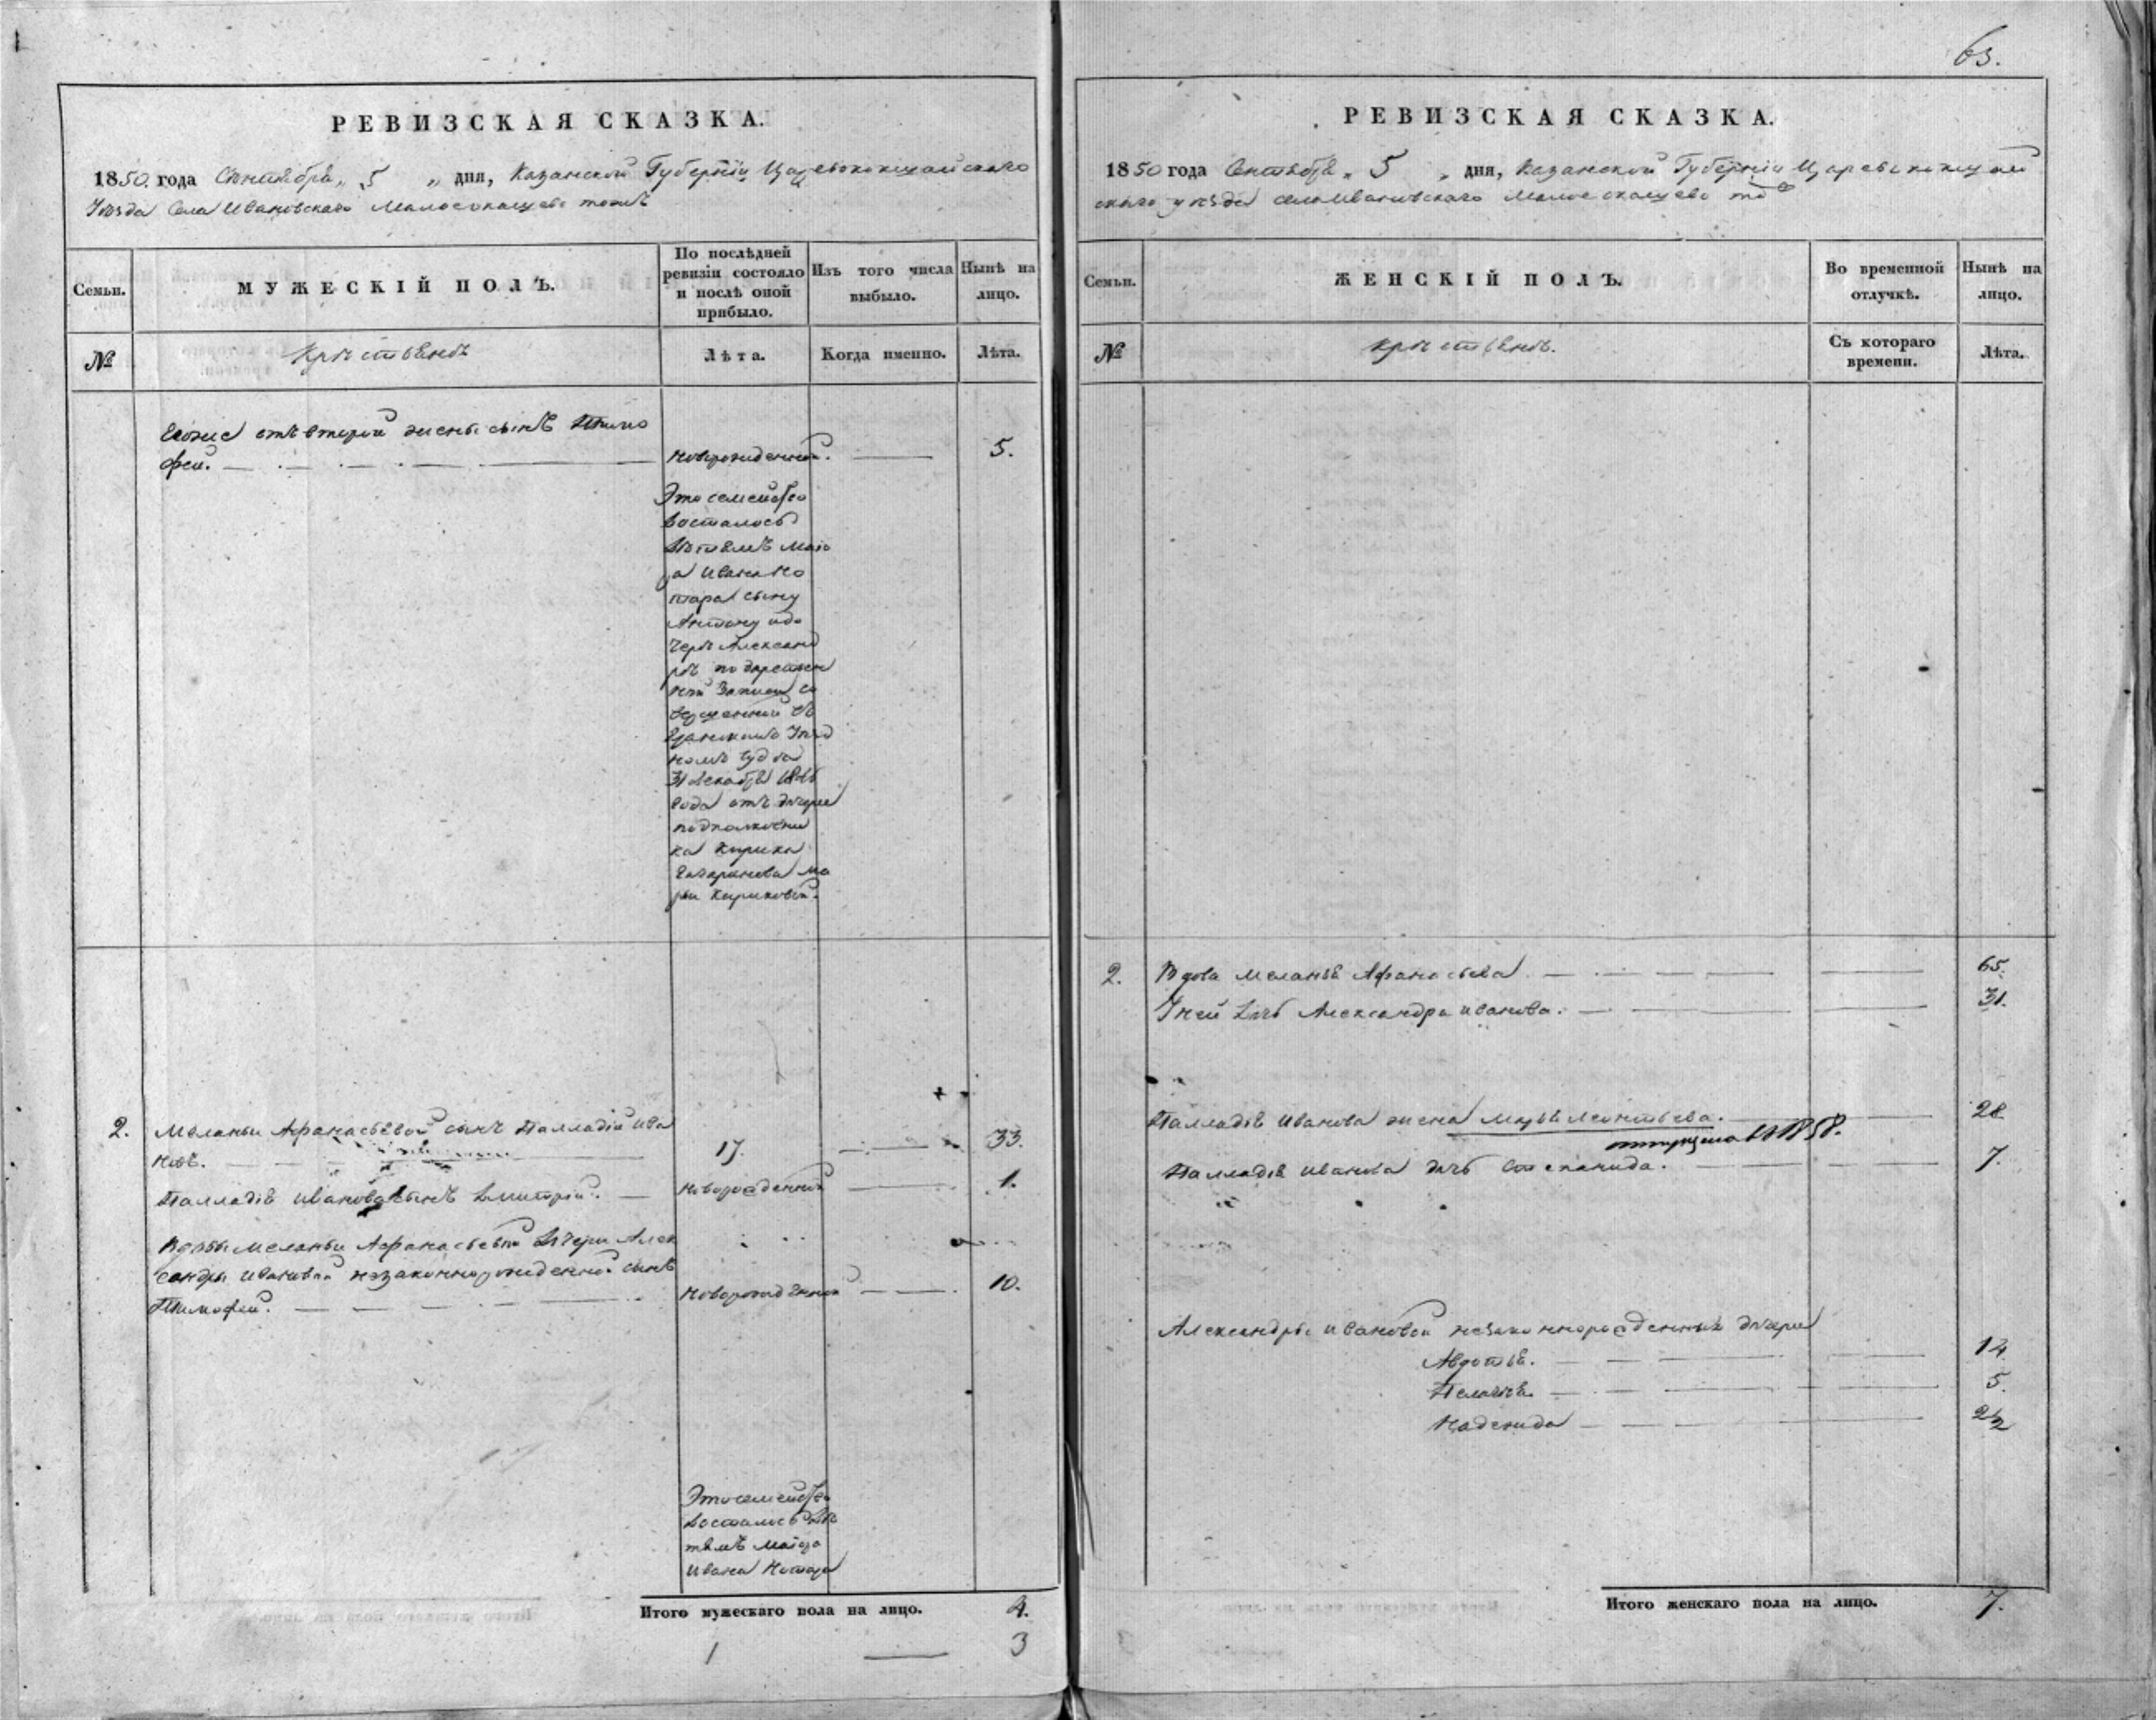 РЕВИЗСКАЯ СКАЗКА.
1850 года Сентября „ 5 „ дня, Казанской Губерніи Царевококшайскаго
Уѣзда Села Ивановскаго Малое кащеево тожъ
Семьи.
МУЖЕСКІЙ ПОЛЪ.
По послѣдней ревизіи состояло и послѣ оной прибыло.
Изъ того числа выбыло.
Нынѣ на лицо.
№
Крестьянъ
Лѣта.
Когда именно.
Лѣта.
отъ второй жены сынъ Тимо
фей.
Новорожденной.
5.
Это семейство
досталось
дѣтямъ Маіо
ра Ивана Но
тара сыну
Антону и до
чери Александ
рѣ по
записи со
вершенной въ
Уѣзд
номъ Суде
31 декабря
года отъ дочери
подполковни
ка Кирика
Ма
рьи Кириковой.
2.
Меланьи Афанасьевой сынъ Палладій Ива
новъ.
17.
33.
Палладія Иванова сынъ Дмитрій.
Новорожденной
1.
Вдовы Меланьи Афанасьевой дочери Алек
сандры Ивановой незаконнорожденной сынъ
Тимофей.
Новорожденной
10.
Это семейство
досталось дѣ
тямъ Маіора
Ивана Нотара
Итого мужескаго пола на лицо.
4.
1
3
63.
РЕВИЗСКАЯ СКАЗКА.
1850 года Сентября „ 5 „ дня, Казанской Губерніи Царевококшай
скаго уѣзда села Ивановскаго Малое кащеево то
Семьи.
ЖЕНСКІЙ ПОЛЪ.
Во временной отлучкѣ.
Нынѣ на лицо.
№
Крестьянъ.
Съ котораго времени.
Лѣта.
2.
Вдова Меланья Афанасьева
65.
У ней дочь Александра Иванова.
31.
Палладія Иванова жена Марья Леонтьева.
28.
отпущена въ 1858.
Палладія Иванова дочь Степанида.
7.
Александры Ивановой незаконнорожденныя дочери
Авдотья.
14.
Пелагея.
5.
Надежда
2½
Итого женскаго пола на лицо.
7.